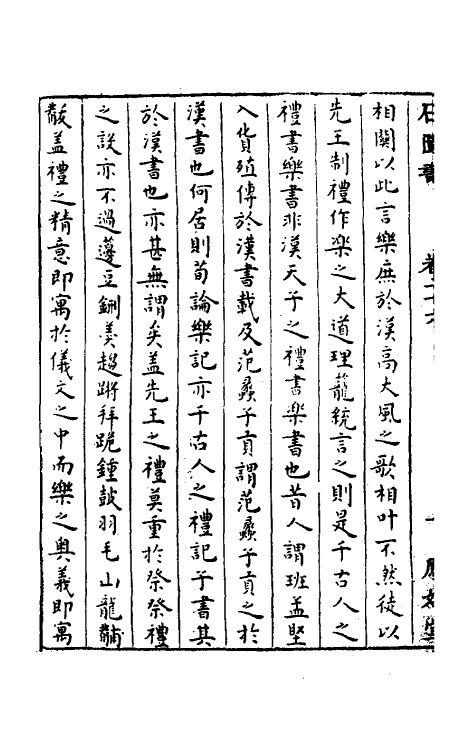 石匱書 卷二十六
相關以此言樂庶於漢高大風之歌相叶不然徒以
先王制禮作楽之大道理籠統言之則是千古人之
禮書樂書非漢天子之禮書楽書也昔人謂班孟堅
入貨殖傳於漢書載及范蠡子貢謂范蠡子貢之於
漢書也何居則荀論樂記亦千古人之禮記子書其
於漢書也亦甚無謂矣盖先王之禮莫重於祭祭禮
之設亦不過籩豆鉶羹趨蹌拜跪鍾皷羽毛山龍黼
黻盖禮之精意即寓於儀文之中而樂之奥義即寓